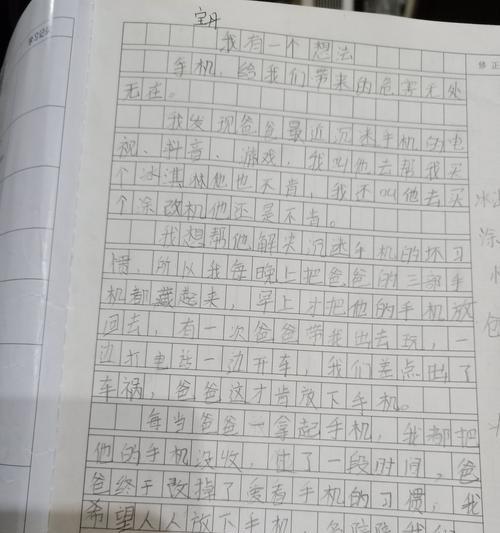 宝丹
我有一个想法
手机，给我们带来的危害无处
无在。
我发现爸爸最近沉迷手机的电
视、抖音、游戏，我叫他去帮我买
个冰淇林他也不肯，我还叫他去买
个涂改机他还是不肯。
我想帮他解决沉迷手机的坏习
惯，所以我每晚上把爸爸的三部手
机都藏起来，早上才把他的手机放
回去，有一次爸爸带我出去玩，一
边打电话一边开车，我们差点出了
车祸，爸爸这才肯放下手机。
每当爸爸一拿起手机，我都把
他的手机没收，过了一段时间，爸
爸终于改掉了爱看手机的习惯，我
希望人人放下手机，多陪陪我们
修正
冰淇
涂
包